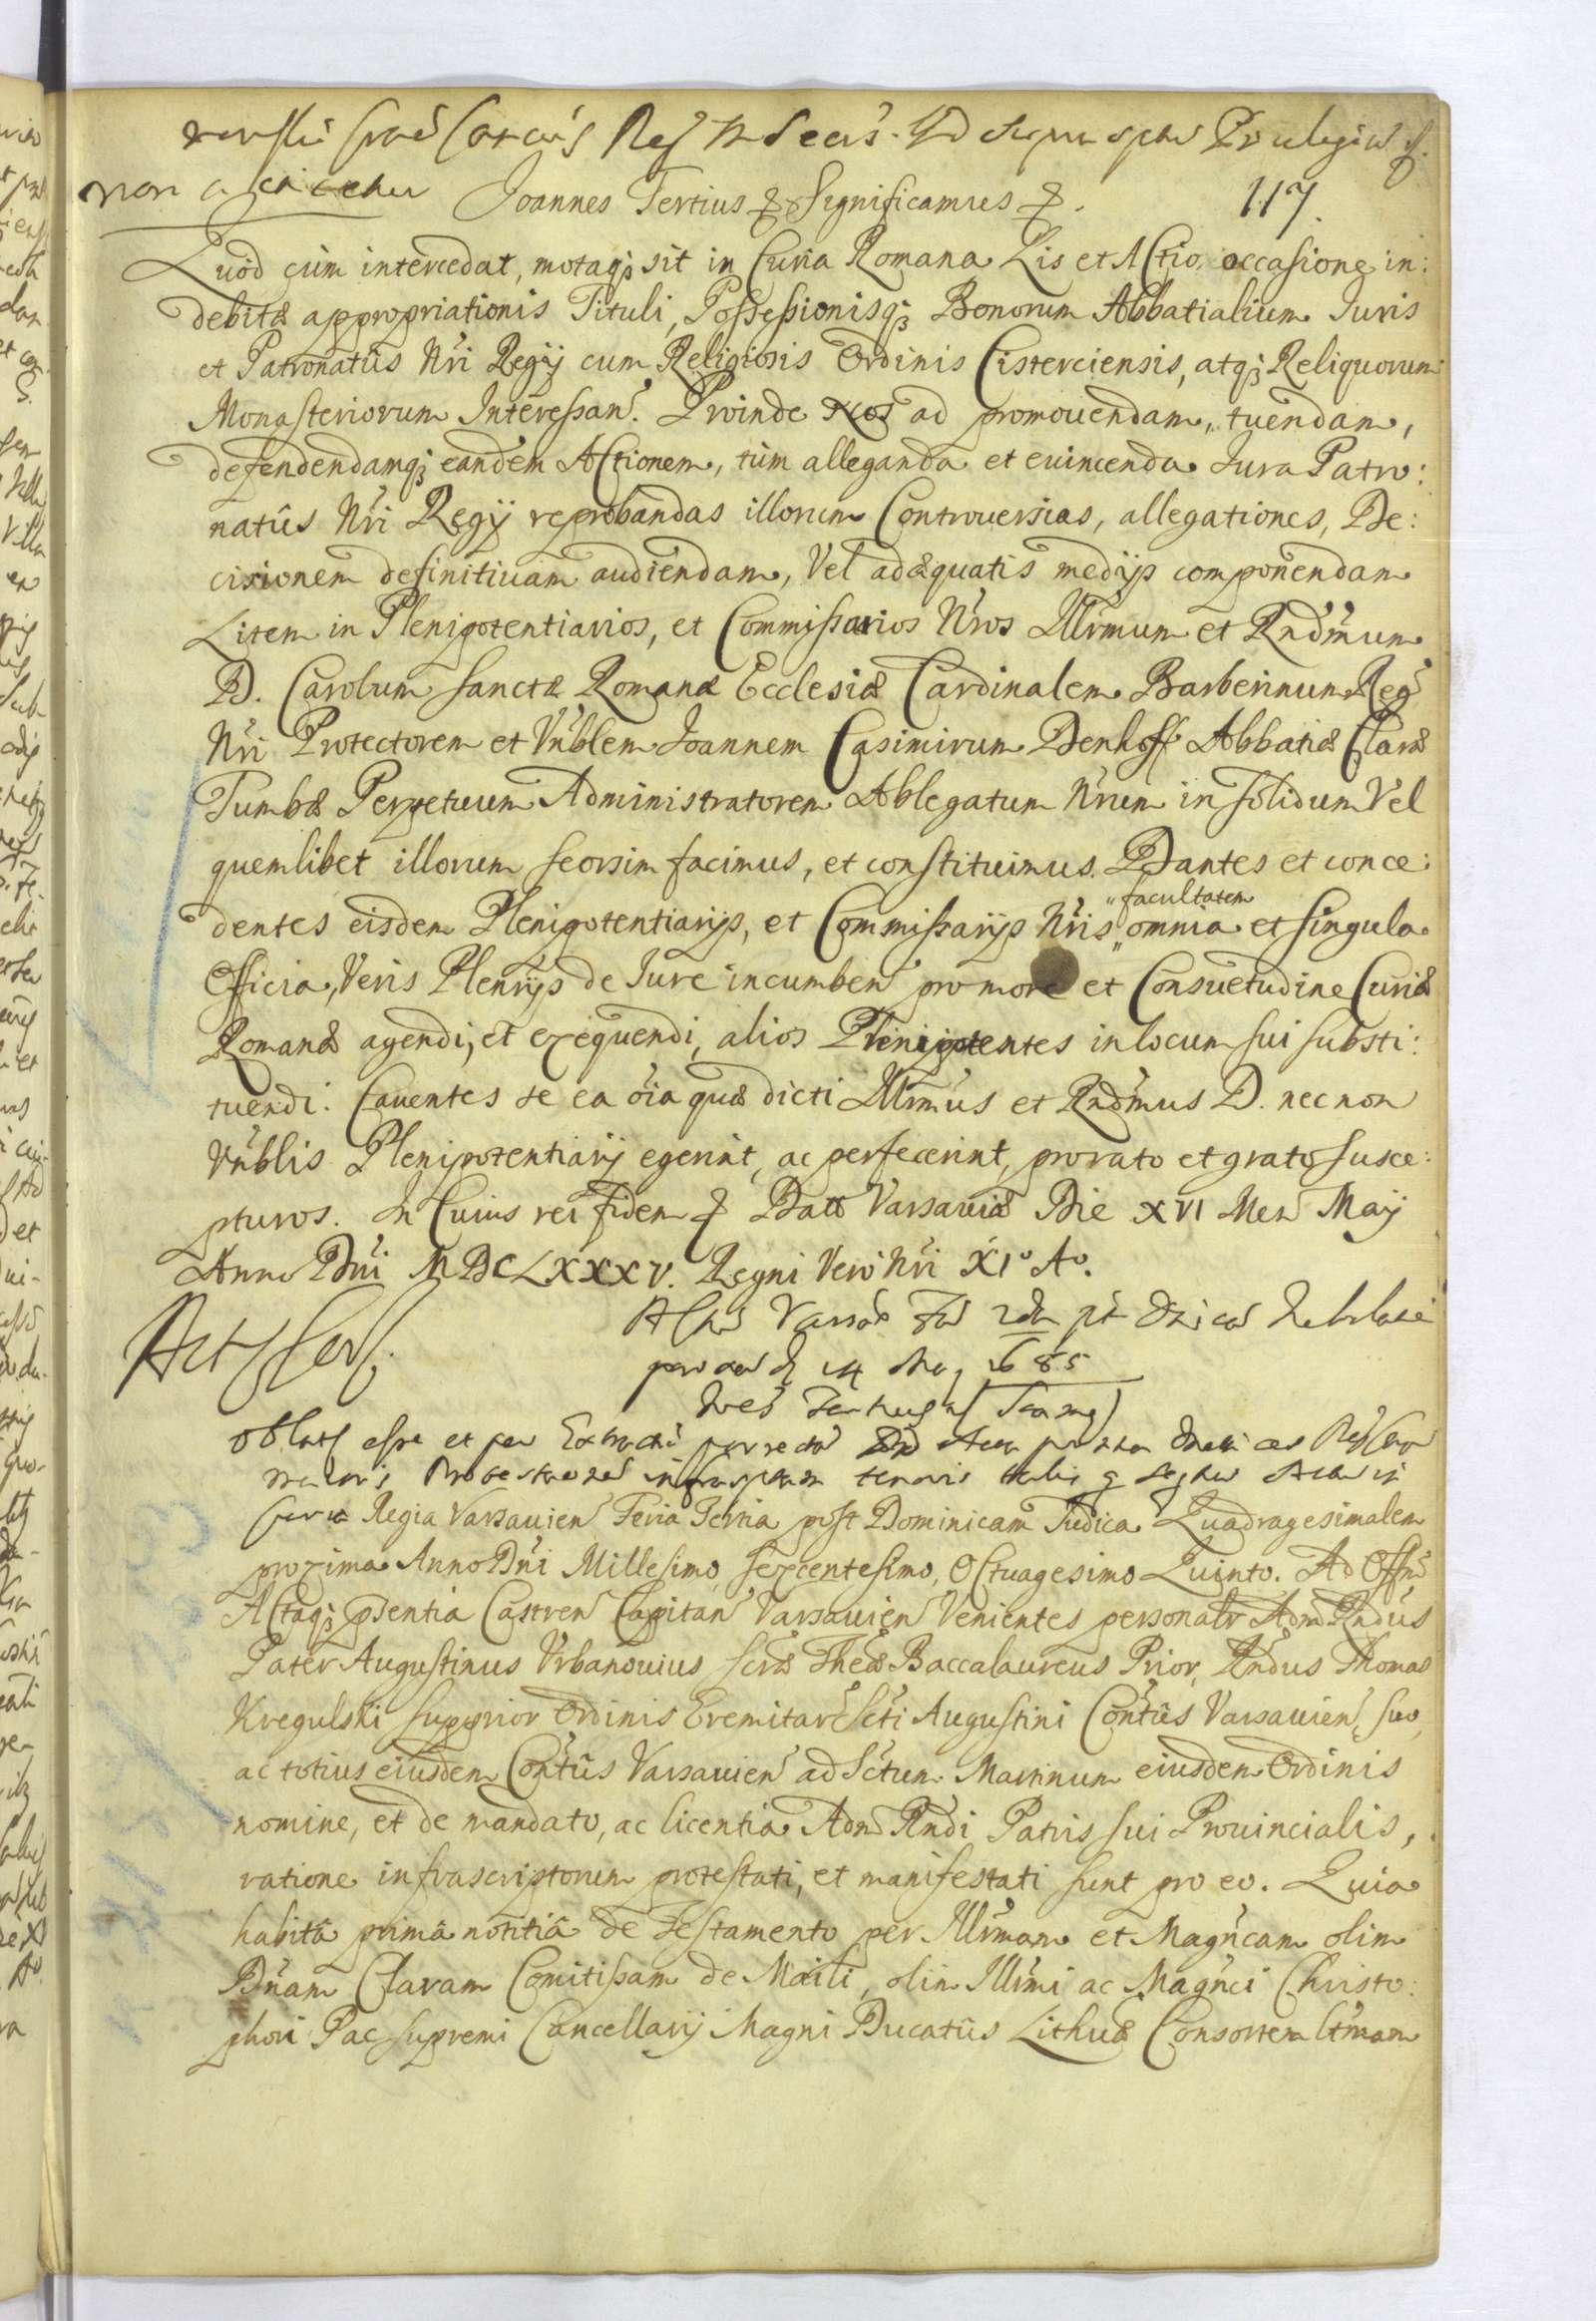 117.
Joannes Tertius & Significamus &.
Quod cùm intercedat, motaq; sit in Curia Romana Lis et Actio occasione in:
debitæ appropriationis Tituli, Possessionisq; Bonorum Abbatialium Iuris
et Patronatûs Nri Regij cum Religiosis Ordinis Cisterciensis, atq; Reliquorum
Monasteriorum Interessan. Proinde Nos ad promouendam, tuendam,
defendendamq; eandem Actionem, tùm alleganda et euincenda Iura Patro:
natûs Nri Regij reprobandas illorum Controuersias, allegationes, De:
cisionem definitiuam audiendam, Vel adæquatis medijs componendam
Litem in Plenipotentiarios, et Commissarios Nros Illrmum et Rndmum
D. Carolum Sanctæ Romanæ Ecclesiæ Cardinalem Barberinum Reg
Nri Protectorem et Vnblem Joannem Casimirum Denhoff Abbatiæ Claræ
Tumbæ Perpetuum Administratorem Ablegatum Nrum in solidum Vel
quemlibet illorum seorsim facimus, et constituimus. Dantes et conce:
dentes eisdem Plenipotentiarijs, et Commissarijs Nris facultatem omnia et singula
Officia, Veris Plenrijs de Iure incumben pro more et Consuetudine Curiæ
Romanæ agendi, et exequendi, alios Plenipotentes in locum sui substi:
tuendi. Cauentes se ea oia quæ dicti Illrmus et Rndmus D. nec non
Vnblis Plenipotentiarij egerint, ac perfecerint, pro rato et grato susce:
pturos. In Cuius rei fidem & Datt Varsauiæ Die XVI Men Maij
Anno Dni MDCLXXXV. Regni Vero Nri XI° A°.
1685
Oblats esse et per
infrascriptam tenoris talis
Curia Regia Varsauien Feria Tertia post Dominicam Iudica Quadragesimalem
proxima Anno Dni Millesimo, sexcentesimo, Octuagesimo Quinto. Ad Offm
Actaq; pntia Castren Capitan Varsauien Venientes personalr Adm Rndus
Pater Augustinus Vrbanouius Scræ Theæ Baccalaureus Prior, Rndus Thomas
Kregulski supprior Ordinis Eremitar Scti Augustini Contûs Varsauien, suo,
ac totius eiusdem Contûs Varsauien ad Sctum Martinum eiusdem Ordinis
nomine, et de mandato, ac licentia Adm Rndi Patris sui Prouincialis,
ratione infrascriptorum protestati, et manifestati sunt pro eo. Quia
habitâ primâ notitiâ de Testamento per Illrmam et Magncam olim
Dnam Claram Comitissam de Maili, olim Illrmi ac Magnci Christo:
phori Pac supremi Cancellarij Magni Ducatûs Lithuæ Consortem ltmam